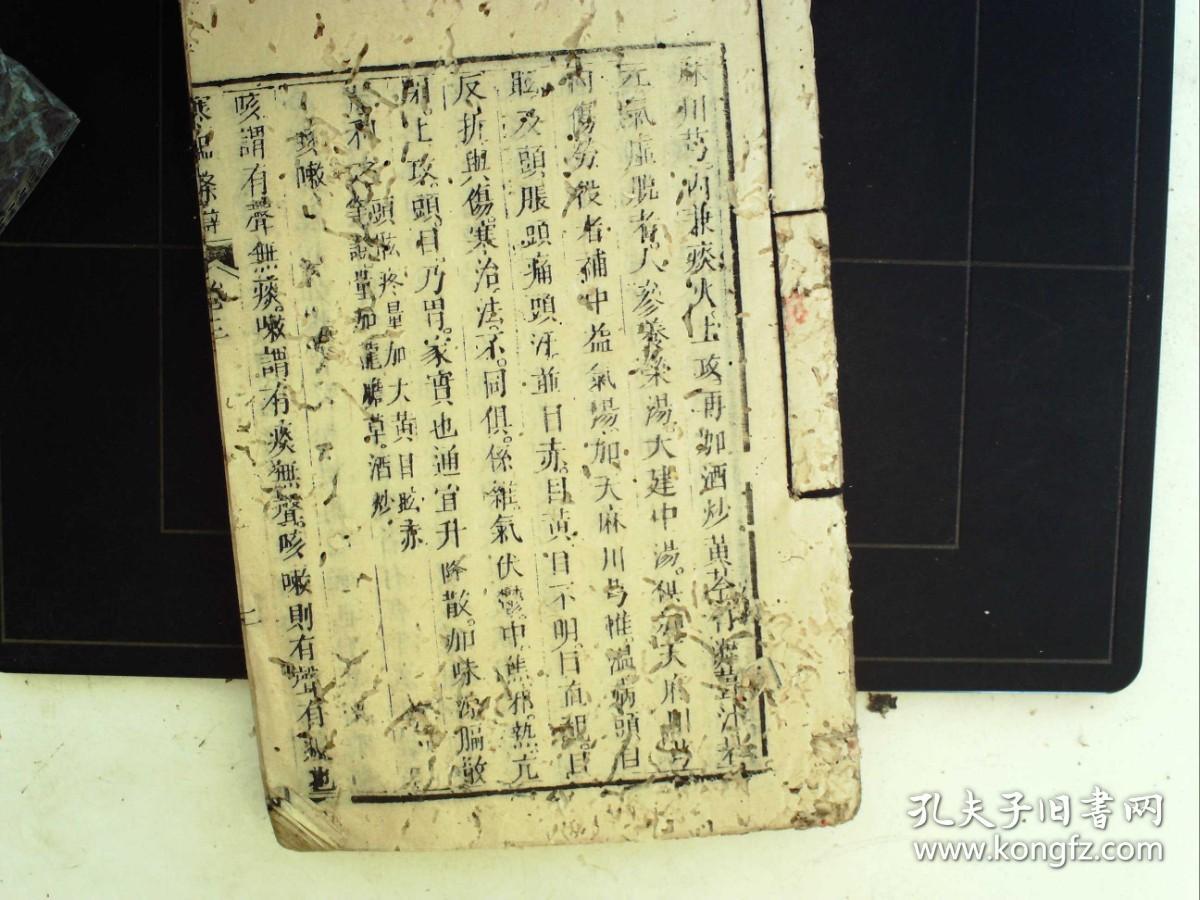 麻川芎內兼痰火上攻再加酒炒黃芩竹瀝薑汁若
元氣虛脫者人參養榮湯大建中湯俱加天麻川芎
內傷勞役者補中益氣湯加天麻川芎惟溫病頭目
眩及頭脹頭痛頭汗並目赤目黃目不明目直視目
反折與傷寒治法不同俱係雜氣伏鬱中焦邪熱亢
閉上攻頭目乃胃家實也通宜升降散加味涼膈散
頭眩疼量加大黃目眩赤
量加龍膽草酒炒
咳嗽
咳謂有聲無痰嗽謂有痰無聲咳嗽則有聲有痰也
寒溫條辨 卷三
孔夫子旧书网
www.kongfz.com